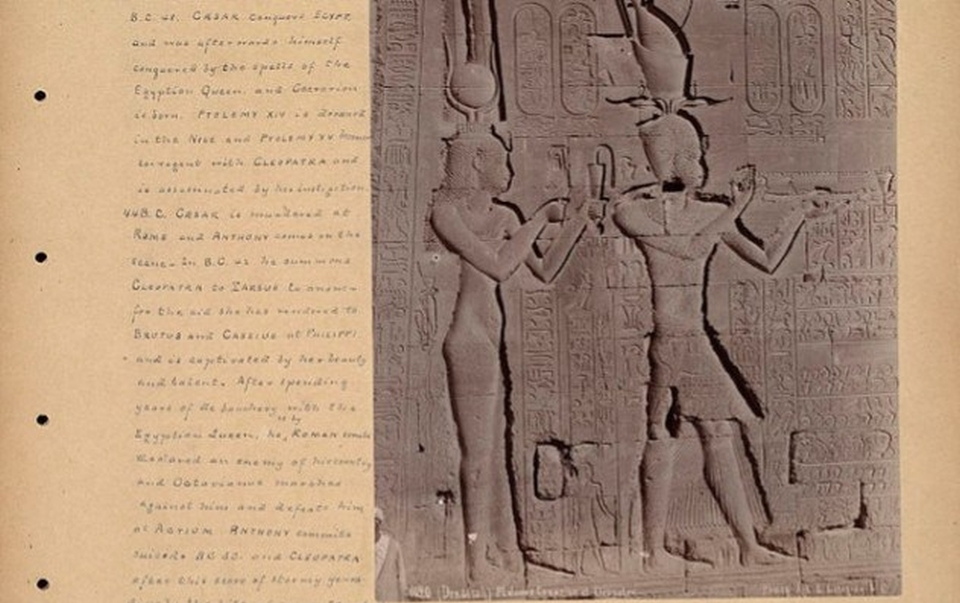 B.C. 48. CÆSAR conquers EGYPT
and was afterwards himself
conquered by the spells of the
Egyptian Queen, and Caesarion
is born. PTOLEMY XIV is drowned
in the NILE and PTOLEMY XV
co-regent with CLEOPATRA and
is assassinated by her instigation.
44 B.C. CÆSAR is murdered at
ROME and ANTHONY comes on the
scene. In B.C. 42 he summons
CLEOPATRA to TARSUS to answer
for the aid she has rendered to
BRUTUS and CASSIUS at PHILIPPI
and is captivated by her beauty
and talent. After spending
years of debauchery with the
Egyptian Queen, he, is by ROMAN
declared an enemy of his country
and Octavianus marches
against him and defeats him
at ACTIUM. ANTHONY commits
suicide B.C. 30. and CLEOPATRA
after this scene of stormy years